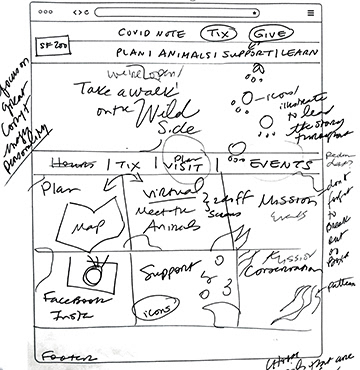 COVID NOTE TIX GIVE
SF ZOO
PLAN | ANIMALS | SUPPORT | LEARN
we're open!
Take a walk
on the Wild
Side
icons/
illustrate
to lead
the story
throughout
focus on
great
copy
personality
HOURS | TIX | Plan VISIT | EVENTS
Plan
Map
Virtual
Meet the
Animals
2 diff
Mission
Mission
Conservation
don't
forget
to
break
out of
pattern
Facebook
Insta
Support
icons
FOOTER